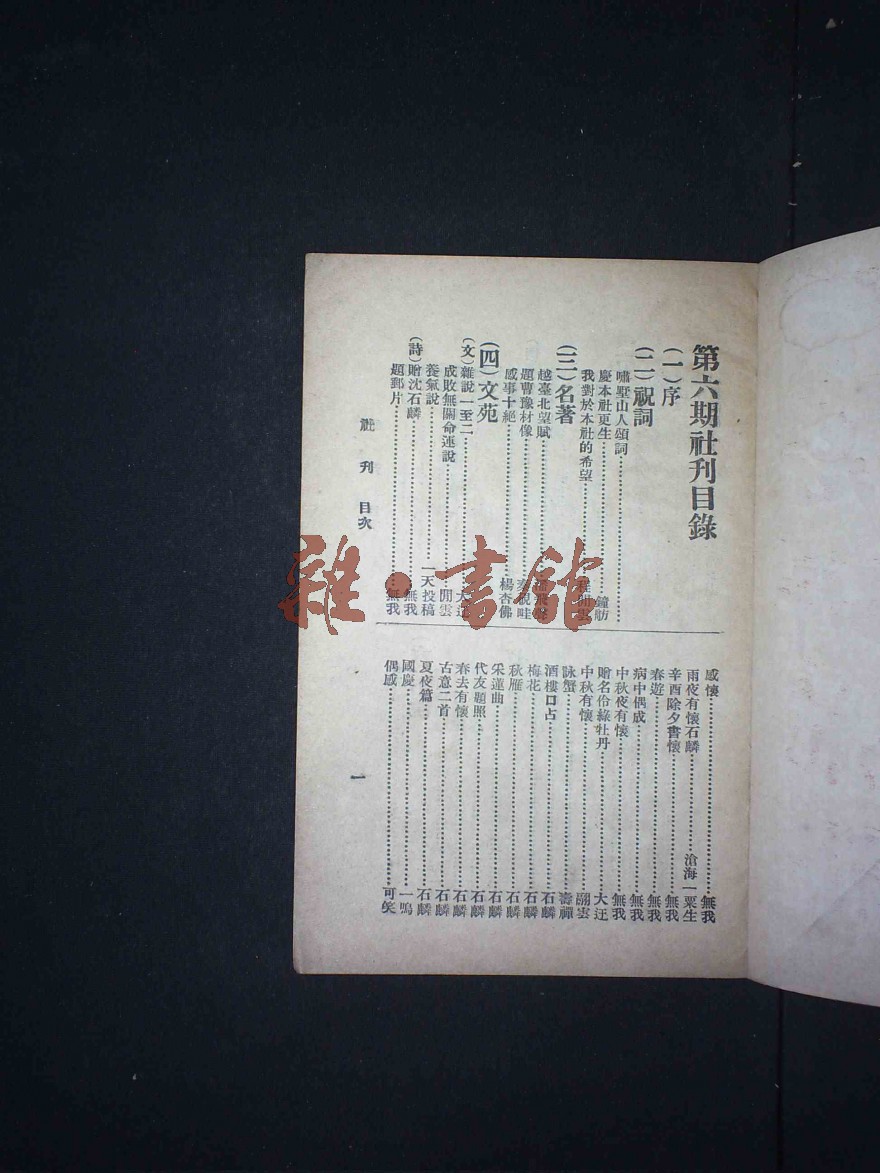 第六期社刊目錄
(一)序
(二)祝詞
嘯墅山人頌詞……鐘舫
慶本社更生……
我對於本社的希望……
(三)名著
越臺北望賦……
題曹豫材像……
感事十絕……楊杏佛
(四)文苑
(文)雜說一至二……大迂
成敗無關命運說……開雲
養氣說……一天投稿
(詩)贈沈石麟……無我
題郵片……無我
社刊目次
感懷……無我
雨夜有懷石麟……滄海一粟生
辛酉除夕書懷……無我
春遊……無我
病中偶成……無我
中秋夜有懷……無我
贈名伶綠牡丹……大迂
中秋有懷……翮雲
詠蟹……壽禪
酒樓口占……石麟
梅花……石麟
秋雁……石麟
采蓮曲……石麟
代友題照……石麟
春去有懷……石麟
古意二首……石麟
夏夜篇……石麟
國慶……一鳴
偶感……可笑
一
雜·書館